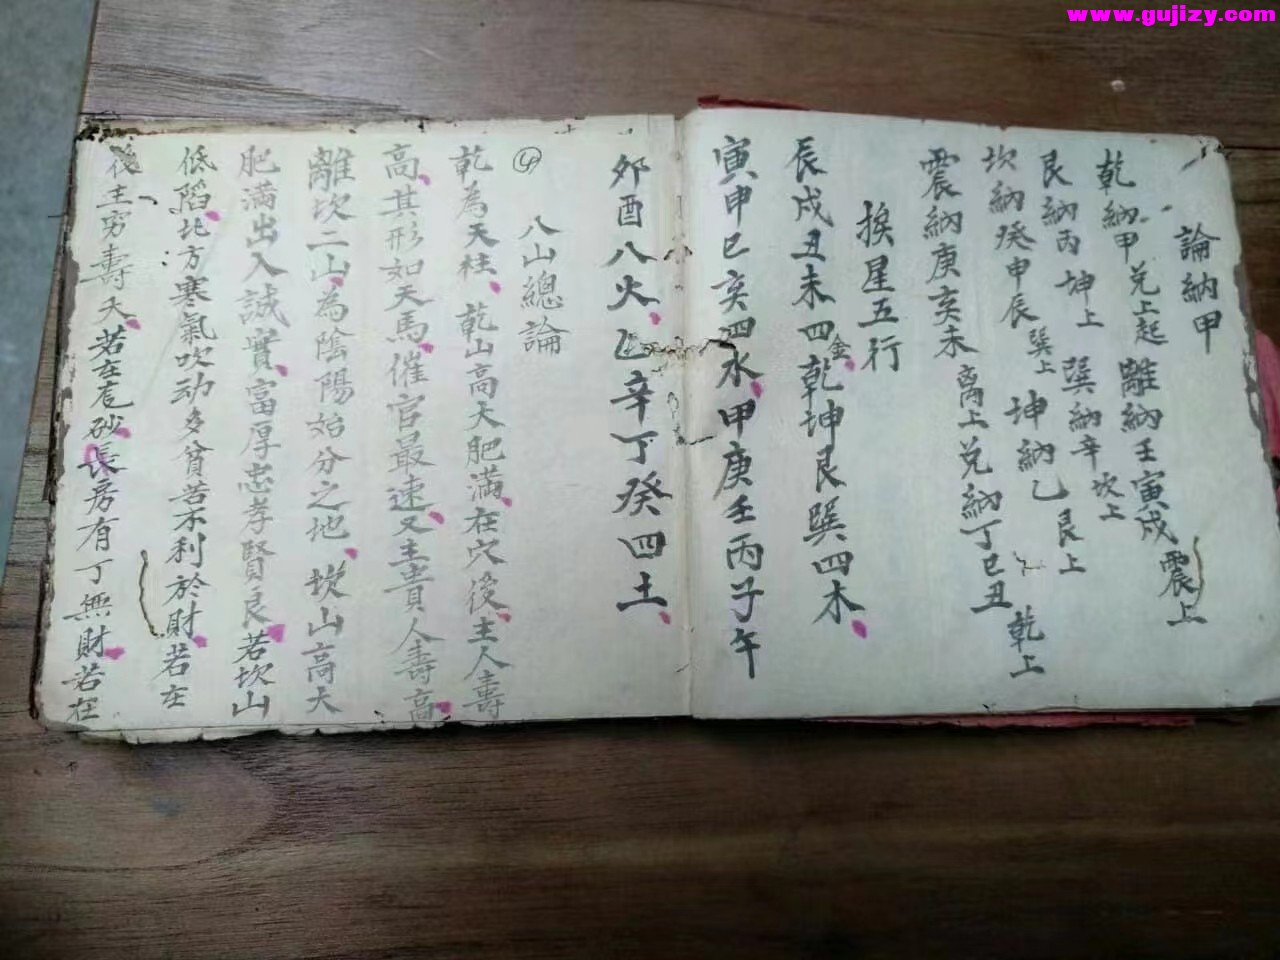 www.gujizy.com
論納甲
乾納甲兑上起 離納壬寅戍 震上
艮納丙 坤上 巽納辛 坎上
坎納癸申辰 巽上 坤納乙 艮上
震納庚亥未 离上兑納丁巳丑 乾上
挨星五行
辰戍丑未四金乾坤艮巽四木
寅申巳亥四水甲庚壬丙子午
夘酉八火乙辛丁癸四土
④
八山總論
乾為天柱乾山高大肥滿在穴後主人壽
高其形如天馬催官最速又主貴人壽高
離坎二山為陰陽始分之地坎山高大
肥滿出入誠實富厚忠孝賢良若坎山
低陷北方寒氣吹动多貧苦不利於財若在
後主穷壽夭若在砂長房有丁無財若在